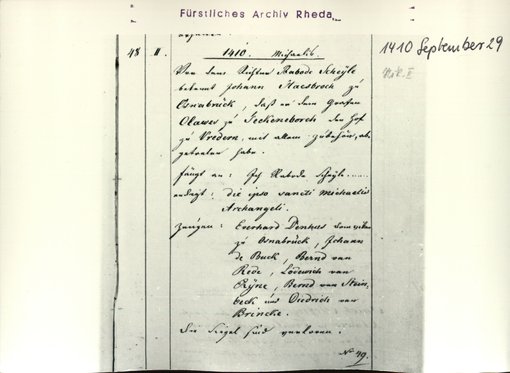 Fürstliches Archiv Rheda
1410 September 29
48 II. 1410. Michaelis.
Von dem Richter Rabode Scheyle
bekennt Johann Stacsbroch zu
Osnabrück, daß er dem Grafen
Olawes zu Teckeneborch den Hof
zu Vredern, mit allem Zubehör, ab-
getreten habe.
fängt an: Ich Rabode Scheyle......
endigt: die ipso sancti Michaelis
Archangeli.
Zeugen: Everhard
zu Osnabrück, Johann
de Buck, Bernd van
Rede, Lodewich van
Bernd van Stein-
beck und Diedrich van
Brincke.
Die Siegel sind verloren.
No 49.